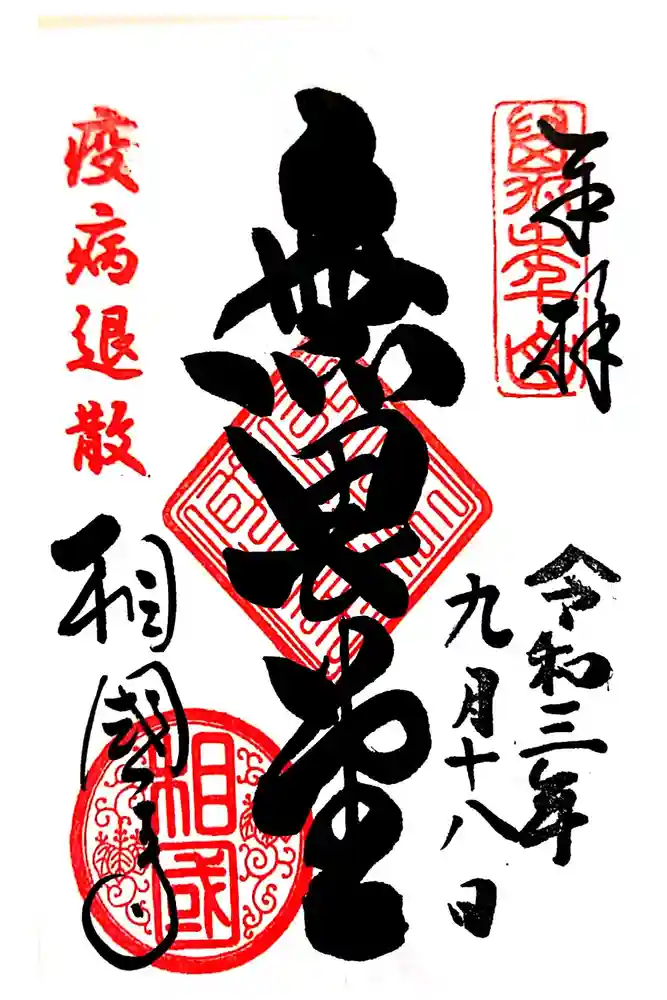 奉拝
令和三年
九月十八日
無畏堂
疫病退散
相國寺
相國